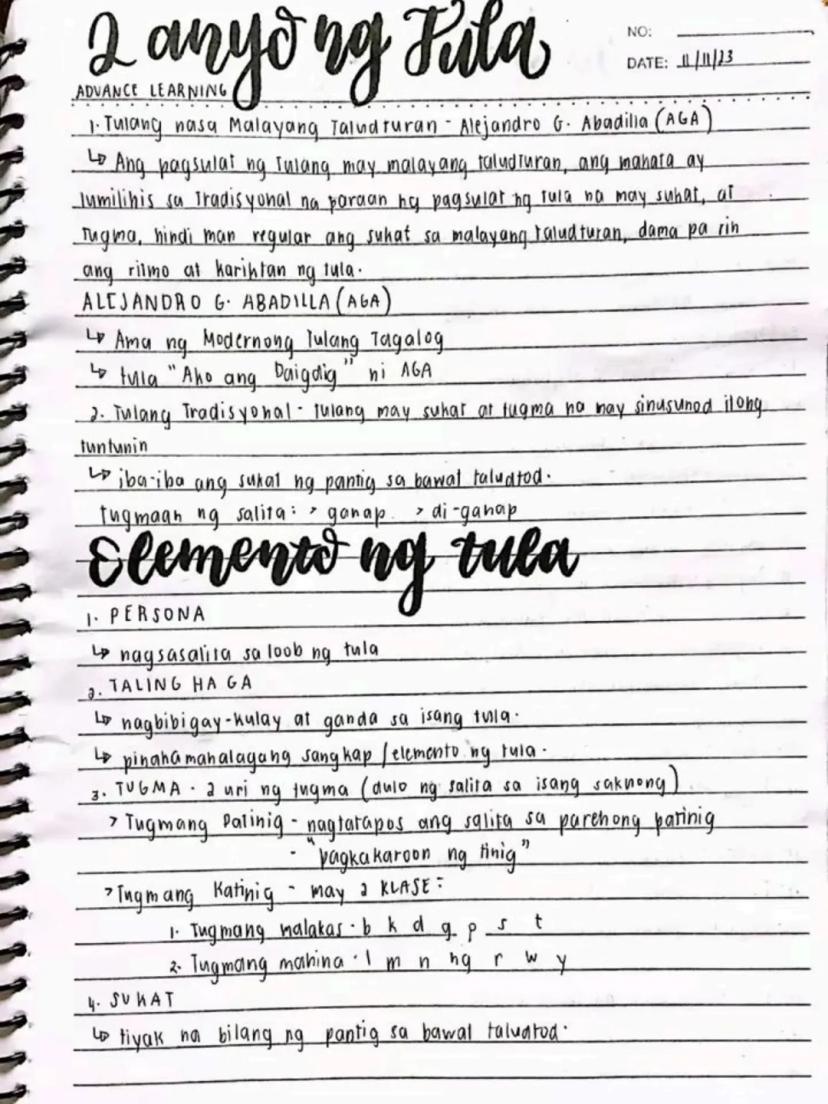 2 anyo ng Tula
NO:
DATE: 11/11/23
ADVANCE LEARNING
1. Tulang nasa Malayang Taludturan - Alejandro G. Abadilla (AGA)
↳ Ang pagsulat ng Tulang may malayang taludturan, ang makata ay
lumilihis sa Tradisyonal na paraan ng pagsulat ng tula na may sukat, at
Tugma, hindi man regular ang sukat sa malayang taludturan, dama pa rin
ang ritmo at kariktan ng tula.
ALEJANDRO G. ABADILLA (AGA)
↳ Ama ng Modernong Tulang Tagalog
↳ tula "Ako ang Daigdig" ni AGA
2. Tulang Tradisyonal - tulang may sukat at tugma na may sinusunod ilong
tuntunin
↳ iba-iba ang sukat ng pantig sa bawat taludtod.
tugmaan ng salita: > ganap > di-ganap
Elemento ng tula
1. PERSONA
↳ nagsasalita sa loob ng tula
2. TALING HA GA
↳ nagbibigay-kulay at ganda sa isang tula.
↳ pinakamahalagang sangkap / elemento ng tula.
3. TUGMA - 2 uri ng tugma (dulo ng salita sa isang saknong)
> Tugmang Patinig - nagtatapos ang salita sa parehong patinig
- "pagkakaroon ng tinig"
> Tugmang Katinig - may 2 KLASE:
1. Tugmang malakas - b k d g p s t
2. Tugmang mahina - l m n ng r w y
4. SUKAT
↳ tiyak na bilang ng pantig sa bawat taludtod.